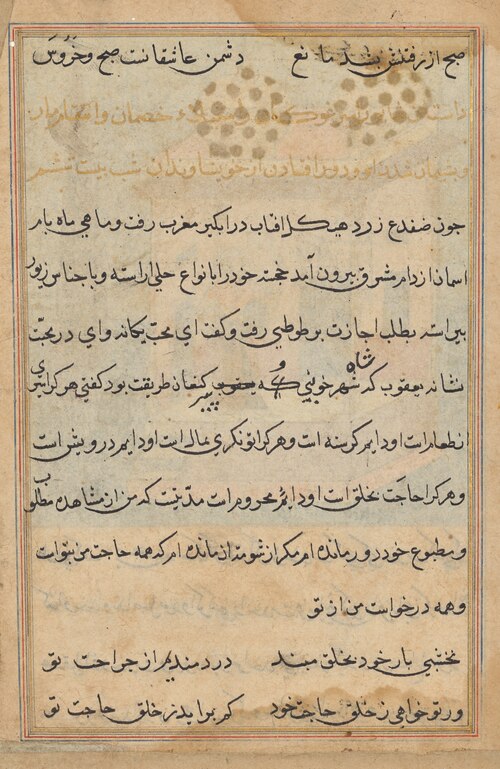 صبح از رفتنش بشد مانع دشمن عاشقانست صبح و خروس
خصمان و
و پشیمان شدن او و دور افتادن از خویشاوندان شب بیست ششم
چون ضفدع زرد هیکل افتاب در ابکیر مغرب رفت و ماهی ماه بام
اسمان از دام مشرق بیرون آمد خجسته خود را بانواع حلی اراسته و باجناس زیور
پیراسته بطلب اجازت بر طوطی رفت و کفت ای محب یکانه و ای در محبت
نشانه یعقوب که شاه شهر خوبی و که پیر کنعان طریقت بود کفتی هر کرا سیری
از طعام است او دایم کرسنه است و هر کرا توانکری بمال است او دایم درویش است
و هر کرا حاجت بخلق است او دایم محروم است مدتیست که من از مشاهده مطلوب
و مطبوع خود دور مانده ام مکر از شومت از مانده ام که همه حاجت من بتو است
و همه درخواست من از تو
نخشبی بار خود بخلق مبند دردمندیم از جراحت تو
ور تو خواهی ز خلق حاجت خود کم براید ز خلق حاجت تو